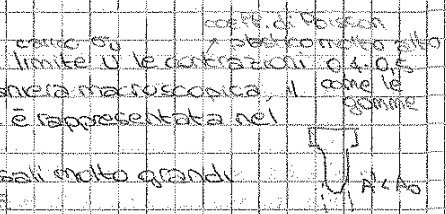 coeff. di Poisson
plastico molto alto
carico σu
limite U le contrazioni 0,4÷0,5
maniera macroscopica, il come le
gomme
è rappresentata nel
sali molto grandi
A' < A0